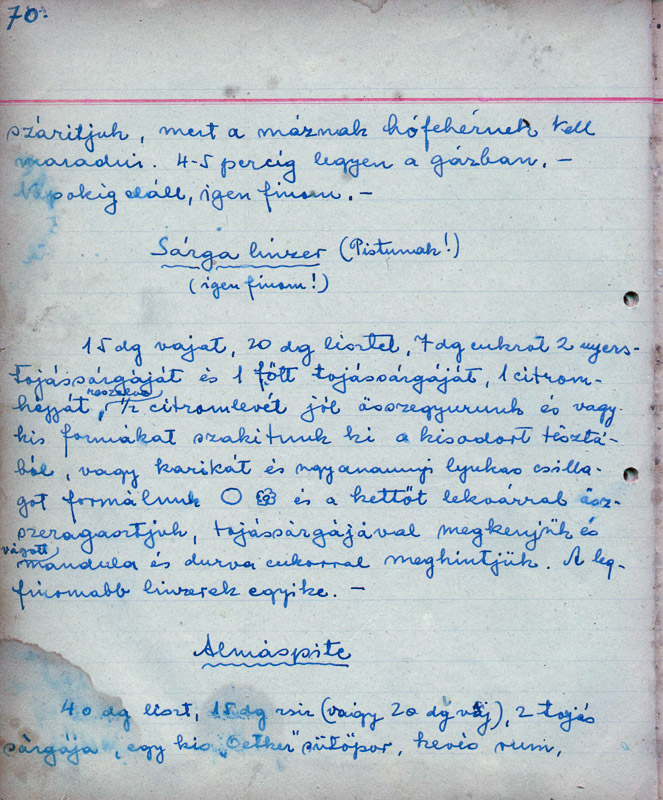 70.
szárítjuk, mert a máznak hófehérnek kell
maradni. 4-5 percig legyen a gázban. –
Napokig eláll, igen finom. –
Sárga linzer (Pistumak!)
(igen finom!)
15 dg vajat, 20 dg lisztet, 7 dg cukrot 2 nyers-
tojássárgáját és 1 főtt tojássárgáját, 1 citrom-
reszelve
héjját, 1/2 citromlevét jól összegyurunk és vagy
kis formákat szakitunk ki a kisodort tésztá-
ból, vagy karikát és ugyanannyi lyukas csilla-
got formálunk és a kettőt lekvárral ösz-
szeragasztjuk, tojássárgájával megkenjük és
vágott
mandula és durva cukorral meghintjük. A leg-
finomabb linzerek egyike. –
Almáspite
40 dg liszt, 15 dg zsir (vagy 20 dg vaj), 2 tojás
sárgája, egy kis „Oetker" sütőpor, kevés rum,